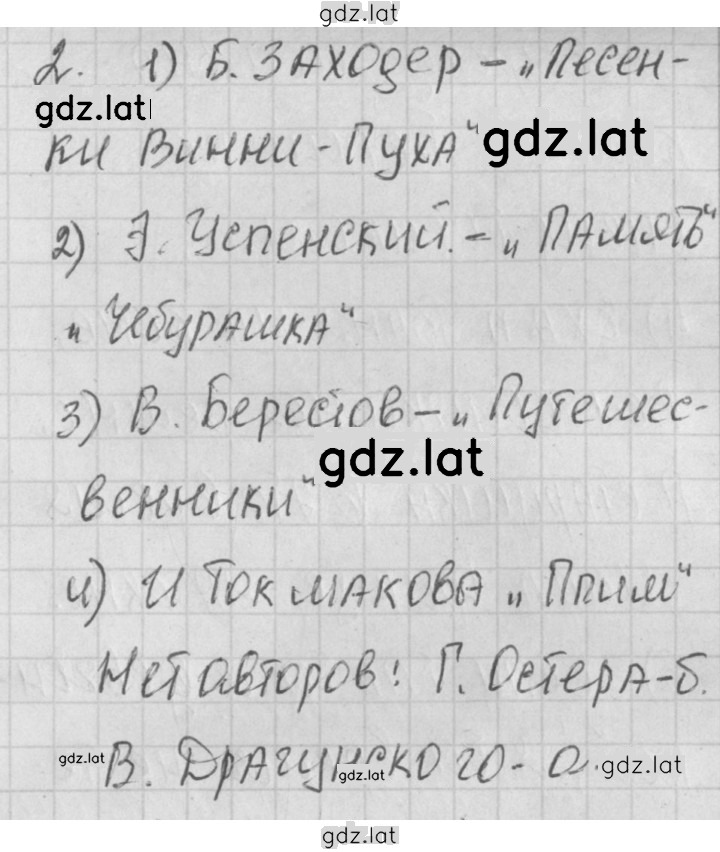 gdz.lat
2. 1) Б. Заходер – „Песен-
gdz.lat
ки Винни - Пуха“ gdz.lat
2) Э. Успенский. – „Память“
„Чебурашка“
3) В. Берестов – „Путешес-
gdz.lat
венники“
4) И Токмакова „Плим“
Нет авторов: Г. Остера – б.
gdz.lat В. Драгунского - а. gdz.lat
gdz.lat
gdz.lat